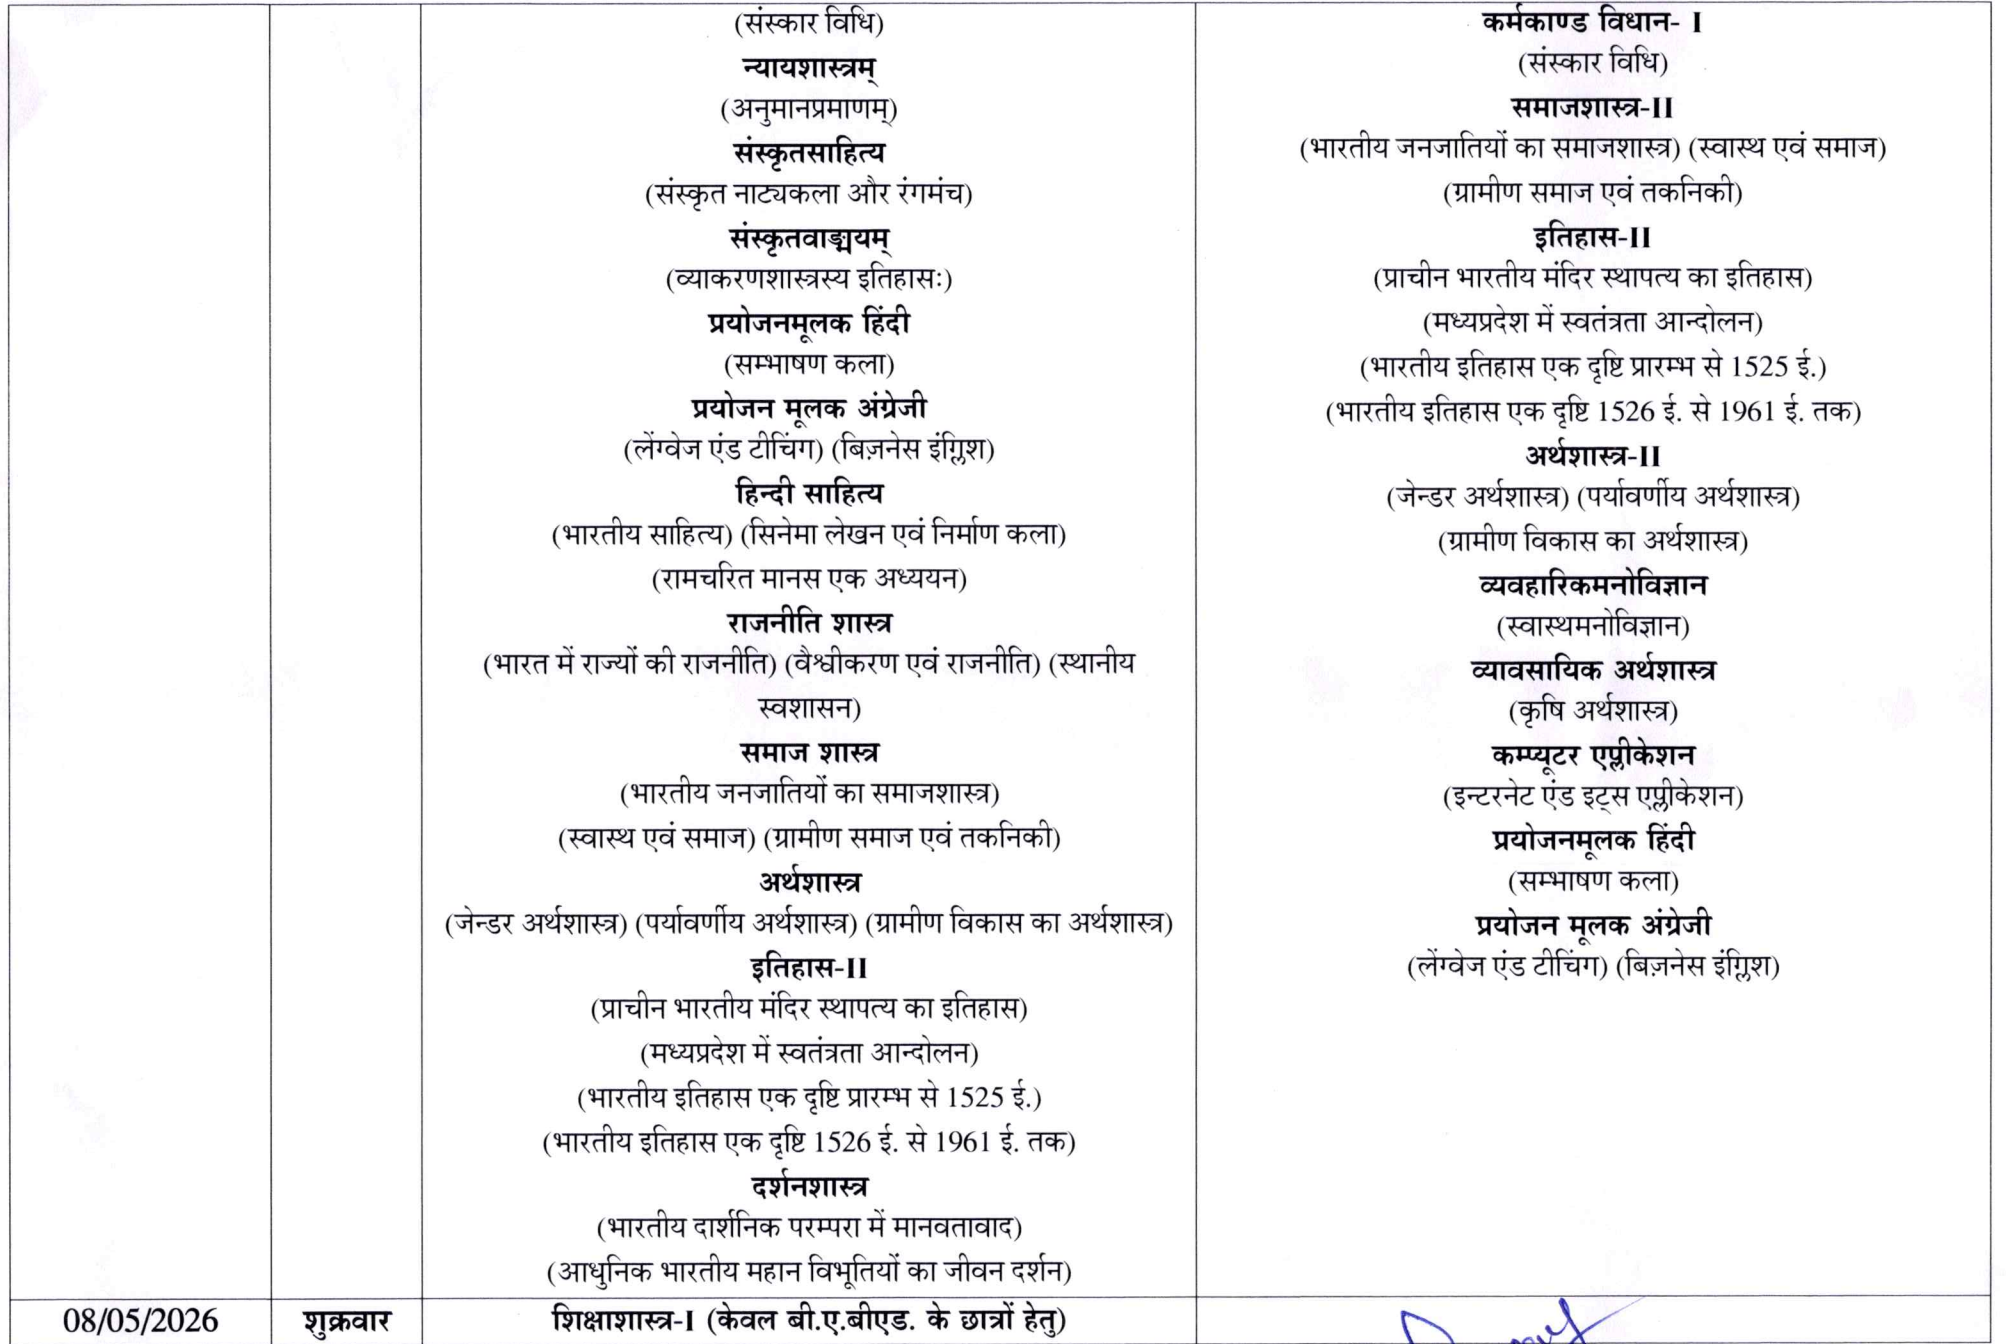 (संस्कार विधि)
न्यायशास्त्रम्
(अनुमानप्रमाणम्)
संस्कृतसाहित्य
(संस्कृत नाट्यकला और रंगमंच)
संस्कृतवाङ्मयम्
(व्याकरणशास्त्रस्य इतिहासः)
प्रयोजनमूलक हिंदी
(सम्भाषण कला)
प्रयोजन मूलक अंग्रेजी
(लेंग्वेज एंड टीचिंग) (बिज़नेस इंग्लिश)
हिन्दी साहित्य
(भारतीय साहित्य) (सिनेमा लेखन एवं निर्माण कला)
(रामचरित मानस एक अध्ययन)
राजनीति शास्त्र
(भारत में राज्यों की राजनीति) (वैश्वीकरण एवं राजनीति) (स्थानीय
स्वशासन)
समाज शास्त्र
(भारतीय जनजातियों का समाजशास्त्र)
(स्वास्थ एवं समाज) (ग्रामीण समाज एवं तकनिकी)
अर्थशास्त्र
(जेन्डर अर्थशास्त्र) (पर्यावर्णीय अर्थशास्त्र) (ग्रामीण विकास का अर्थशास्त्र)
इतिहास-II
(प्राचीन भारतीय मंदिर स्थापत्य का इतिहास)
(मध्यप्रदेश में स्वतंत्रता आन्दोलन)
(भारतीय इतिहास एक दृष्टि प्रारम्भ से 1525 ई.)
(भारतीय इतिहास एक दृष्टि 1526 ई. से 1961 ई. तक)
दर्शनशास्त्र
(भारतीय दार्शनिक परम्परा में मानवतावाद)
(आधुनिक भारतीय महान विभूतियों का जीवन दर्शन)
कर्मकाण्ड विधान- I
(संस्कार विधि)
समाजशास्त्र-II
(भारतीय जनजातियों का समाजशास्त्र) (स्वास्थ एवं समाज)
(ग्रामीण समाज एवं तकनिकी)
इतिहास-II
(प्राचीन भारतीय मंदिर स्थापत्य का इतिहास)
(मध्यप्रदेश में स्वतंत्रता आन्दोलन)
(भारतीय इतिहास एक दृष्टि प्रारम्भ से 1525 ई.)
(भारतीय इतिहास एक दृष्टि 1526 ई. से 1961 ई. तक)
अर्थशास्त्र-II
(जेन्डर अर्थशास्त्र) (पर्यावर्णीय अर्थशास्त्र)
(ग्रामीण विकास का अर्थशास्त्र)
व्यवहारिकमनोविज्ञान
(स्वास्थमनोविज्ञान)
व्यावसायिक अर्थशास्त्र
(कृषि अर्थशास्त्र)
कम्प्यूटर एप्लीकेशन
(इन्टरनेट एंड इट्स एप्लीकेशन)
प्रयोजनमूलक हिंदी
(सम्भाषण कला)
प्रयोजन मूलक अंग्रेजी
(लेंग्वेज एंड टीचिंग) (बिज़नेस इंग्लिश)
08/05/2026 शुक्रवार शिक्षाशास्त्र-I (केवल बी.ए.बीएड. के छात्रों हेतु)